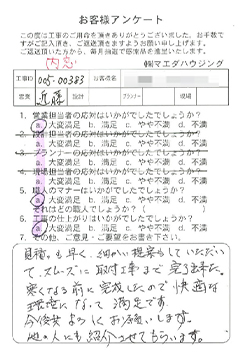 お客様アンケート
この度は工事のご用命を頂きありがとうございました。お手数で
すがご記入頂き、ご返送頂きますようお願い申し上げます。
ご返送頂いた方から、毎月抽選で感謝品を進呈いたします。
内窓
㈱マエダハウジング
工事ID 005-00383 お客様名
営業 近藤 設計 プランナー 現場
1. 営業担当者の対応はいかがでしたでしょうか?
a. 大変満足 b. 満足 c. やや不満 d. 不満
2. 設計担当者の対応はいかがでしたでしょうか?
a. 大変満足 b. 満足 c. やや不満 d. 不満
3. プランナーの対応はいかがでしたでしょうか?
a. 大変満足 b. 満足 c. やや不満 d. 不満
4. 現場担当者の対応はいかがでしたでしょうか?
a. 大変満足 b. 満足 c. やや不満 d. 不満
5. 職人のマナーはいかがでしたでしょうか?
a. 大変満足 b. 満足 c. やや不満 d. 不満
それはどの職人でしょうか?( )
6. 工事の仕上がりはいかがでしたでしょうか?
a. 大変満足 b. 満足 c. やや不満 d. 不満
7. その他、ご意見・ご要望をお書き下さい。
見積もも早く、細かい提案もしていただい
て、スムーズに取付工事まで完了出来た。
寒くなる前に完成したので快適な
環境になって満足です。
今後共よろしくお願いします。
他の人にも紹介させてもらいます。